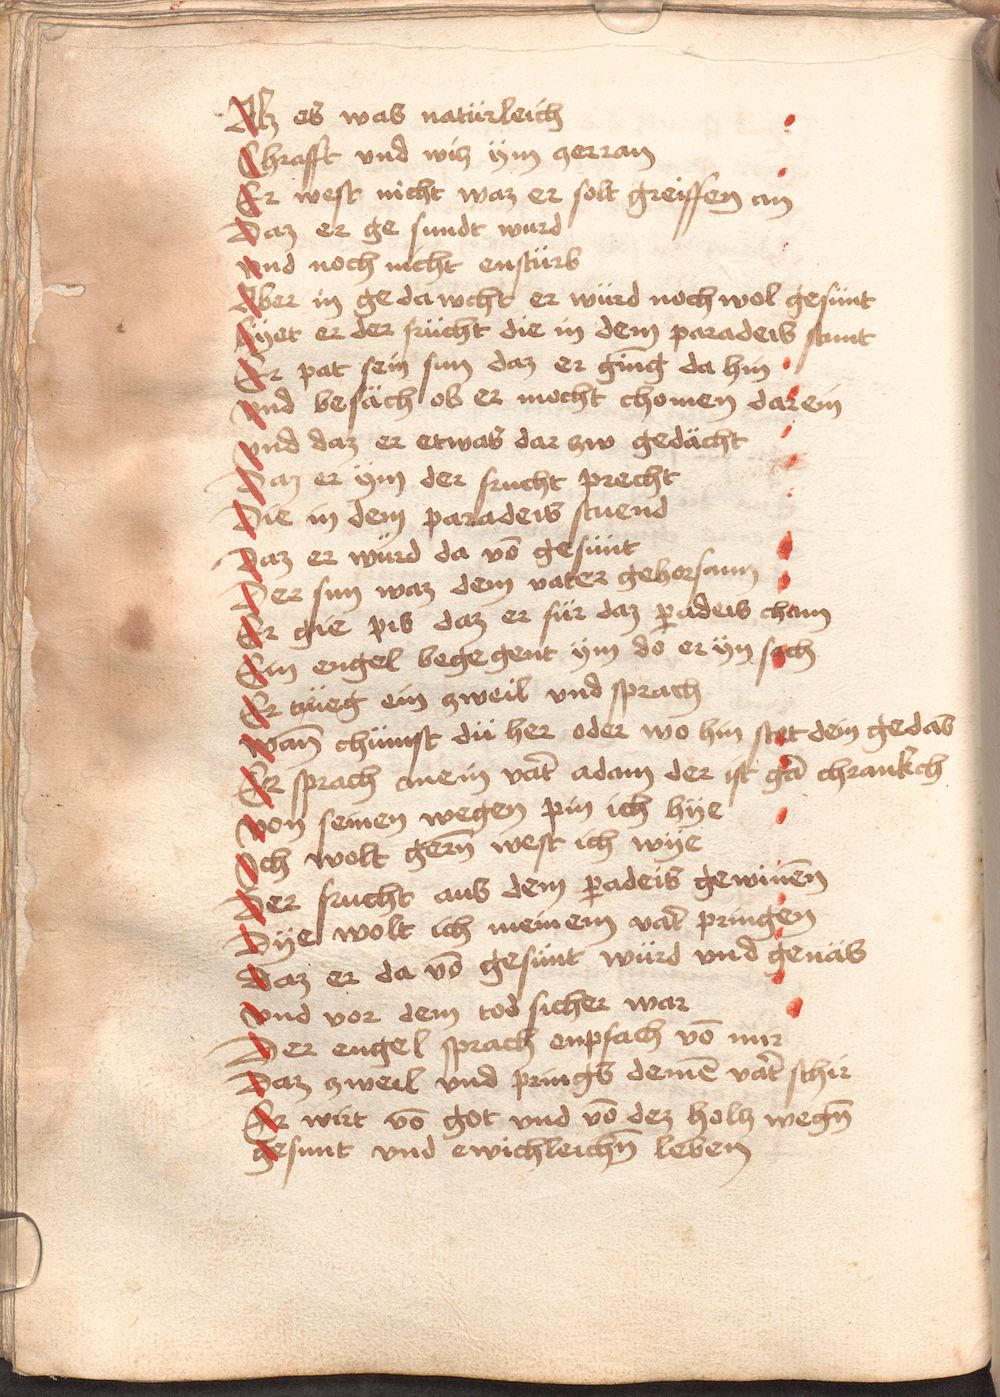 Alz es was natürleich
Chrafft vnd wiz ÿm zerran
Er west nicht waz er solt greiffen an
Daz er ge sundt wurd
vnd noch nicht enstürb
Aber in ge dawcht er würd noch wol gesünt
Hÿet er der frücht die in dem paradeis stunt
Er pat sein sun daz er ging da hin
vnd besäch ob er mocht chomen darein
vnd daz er etwas dar zw gedächt
Daz er ÿm der frucht precht
Die in dem paradeis stuend
Daz er würd da võ gesünt
Der sun waz dem vater gehorsam
Er gie pis daz er für daz p̲adeis cham
Ein engel begegent ÿm do er ÿn sach
Er trüeg ein zweil vnd sprach
wan̄ chümst dü her oder wo hin stet dein gedäs
Er sprach mein vat̄ adam der ist gā chranckch
von seinen wegen pin ich hÿe
Ich wolt gern̄ west ich wÿe
Der frucht aus dem p̲adeis gewinēn
Dÿe wolt ich meinem vat̄ pringen
Daz er da võ gesünt würd vnd genäs
vnd vor dem tod sicher war
Der engel sprach enpfach võ mir
Daz zweil vnd prings deinē vat̄ schir
Er wirt võ got vnd võ dez holz wegn̄
gesunt vnd ewichleichn̄ leben